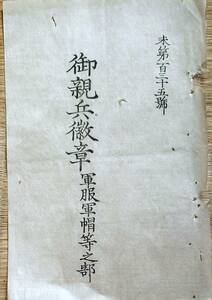 未第一百三十五號
御親兵徽章軍服軍帽等之部